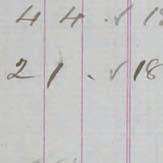 4 4 . ✓ 1
2 1 . ✓ 18